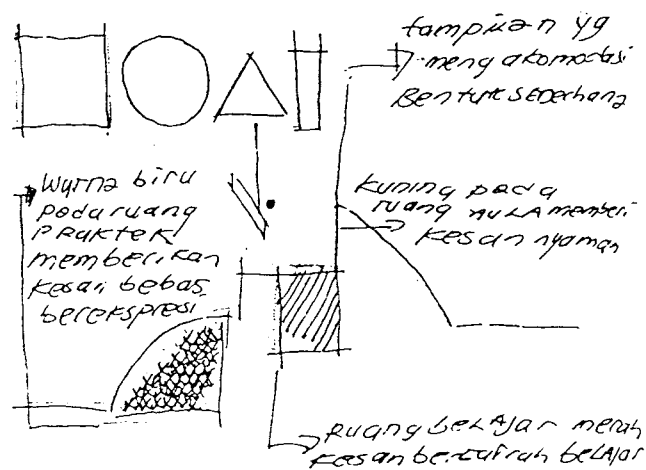 tampilan yg
mengakomodasi
Bentuk sederhana
Warna biru
pada ruang
praktek
memberikan
kesan bebas
berekspresi
kuning pada
ruang mukA memberi
kesan nyaman
Ruang belAjar merah
kesan bergairah belAjar